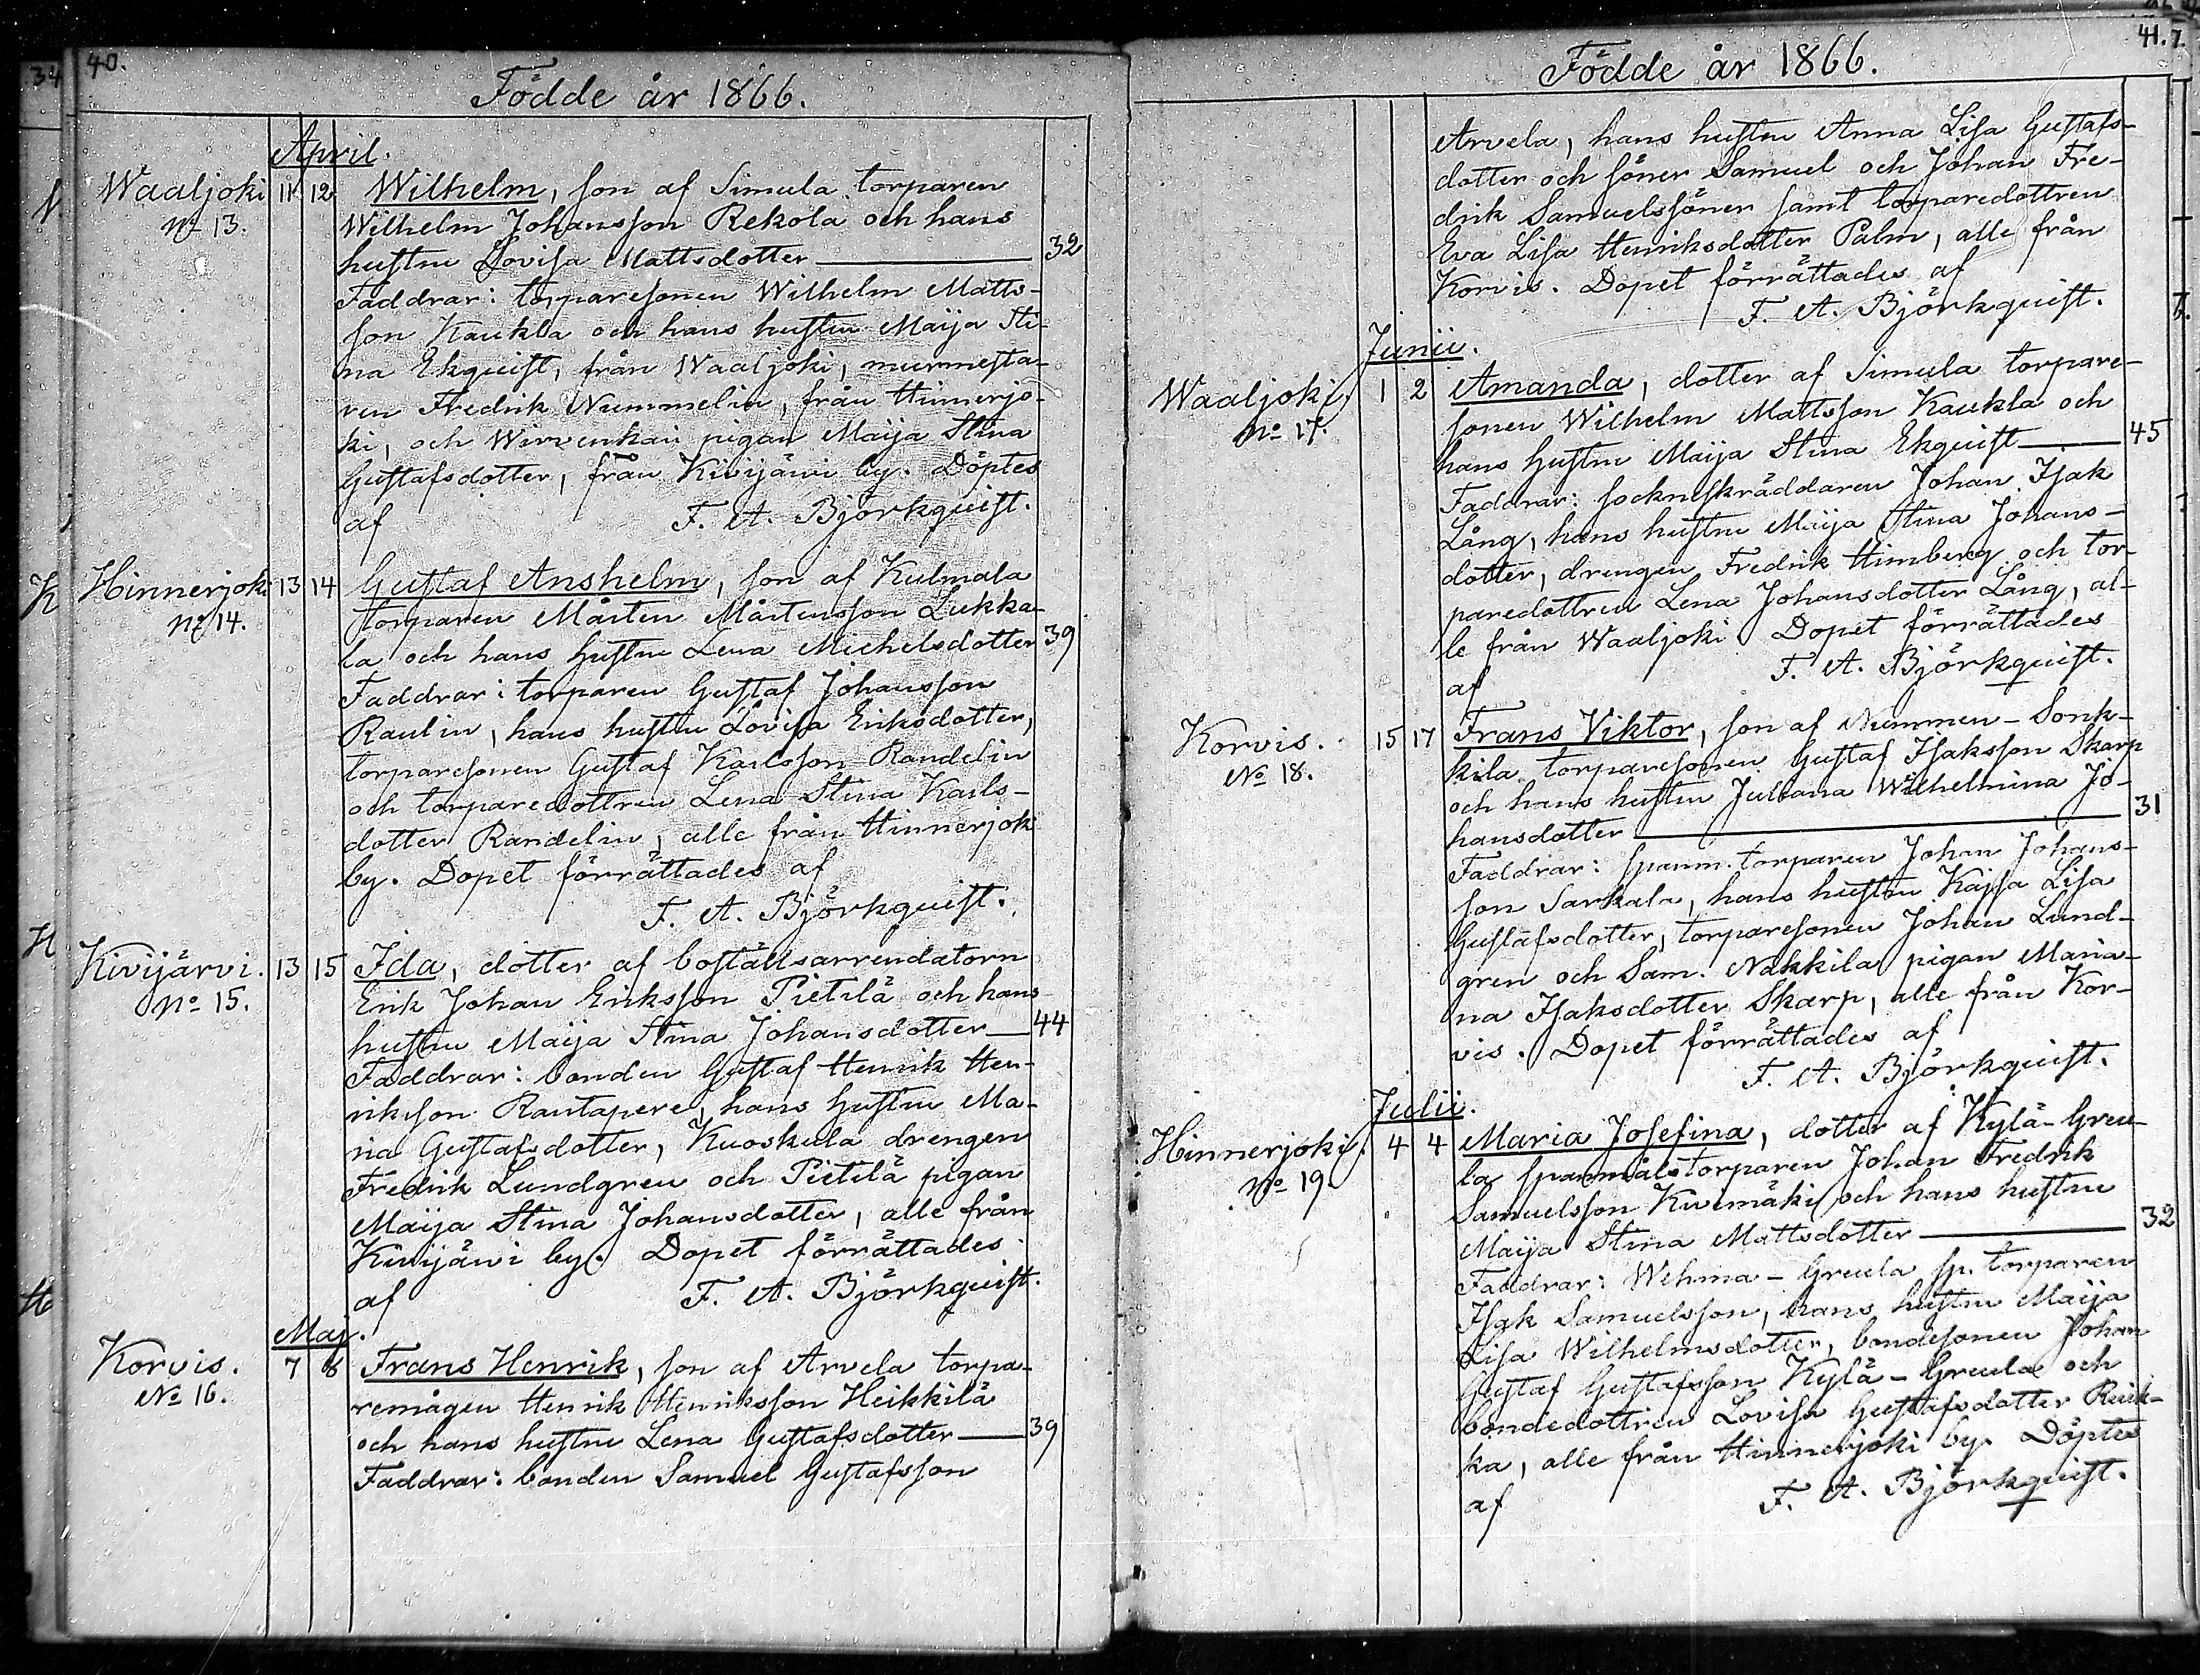 34
40.
Födde år 1866.
April.
Waaljoki 11 12 Wilhelm, son af Simula torparen
No 13. Wilhelm Johansson Rekola och hans
hustru Lovisa Mattsdotter 32
Faddrar: torparesonen Wilhelm Matts-
son Kaukla och hans hustru Maija Sti-
na Ekquist, från Waaljoki, murmesta-
ren Fredrik Nummelin, från Hinnerjo-
ki, och Wirvenkari pigan Maija Stina
Gustafsdotter, från Kivijärvi by. Döptes
af F. A. Björkquist.
Hinnerjoki 13 14 Gustaf Anshelm, son af Kulmala
No 14. torparen Mårten Mårtensson Lukka-
la och hans hustru Lena Michelsdotter 39
Faddrar: torparen Gustaf Johansson
Raulin, hans hustru Lovisa Eriksdotter,
torparesonen Gustaf Karlsson Randelin
och torparedottren Lena Stina Karls-
dotter Randelin, alle från Hinnerjoki
by. Dopet förrättades af
F. A. Björkquist.
Kivijärvi. 13 15 Ida, dotter af boställsarrendatorn
No 15. Erik Johan Eriksson Pietilä och hans
hustru Maija Stina Johansdotter 44
Faddrar: bonden Gustaf Henrik Hen-
riksson Rautapere, hans hustru Ma-
ria Gustafsdotter, Kuoskula drengen
Fredrik Lundgren och Pietilä pigan
Maija Stina Johansdotter, alle från
Kivijärvi by. Dopet förrättades
af F. A. Björkquist.
Maj.
Korvis. 7 8 Frans Henrik, son af Arvela torpa-
No 16. remågen Henrik Henriksson Heikkilä
och hans hustru Lena Gustafsdotter 39
Faddrar: bonden Samuel Gustafsson
41.
Födde år 1866.
Arvela, hans hustru Anna Lisa Gustafs-
dotter och söner Samuel och Johan Fre-
drik Samuelssöner samt torparedottren
Eva Lisa Henriksdotter Palm, alle från
Korvis. Dopet förrättades af
F. A. Björkquist.
Junii.
Waaljoki. 1 2 Amanda, dotter af Simula torpare-
No 17. sonen Wilhelm Mattsson Kaukla och
hans hustru Maija Stina Ekquist 45
Faddrar: socknskräddaren Johan Isak
Lång, hans hustru Maija Stina Johans-
dotter, drengen Fredrik Himberg och tor-
paredottren Lena Johansdotter Lång, al-
le från Waaljoki Dopet förrättades
af F. A. Björkquist.
Korvis. 15 17 Frans Viktor, son af Nummen-Sonk-
No 18. kila torparesonen Gustaf Isaksson Skarp
och hans hustru Juliana Wilhelmina Jo-
hansdotter 31
Faddrar: spanm. torparen Johan Johans-
son Sarkala, hans hustru Kajsa Lisa
Gustafsdotter, torparesonen Johan Lund-
gren och Sam. Nakkila pigan Maria-
na Isaksdotter Skarp, alle från Kor-
vis. Dopet förrättades af
F. A. Björkquist.
Julii.
Hinnerjoki. 4 4 Maria Josefina, dotter af Kylä-Greu-
No 19. la spanmålstorparen Johan Fredrik
Samuelsson Kivimäki och hans hustru
Maija Stina Mattsdotter 32
Faddrar: Wehma-Greula sp. torparen
Isak Samuelsson, hans hustru Maija
Lisa Wilhelmsdotter, bondesonen Johan
Gustaf Gustafsson Kylä-Greula och
bondedottren Lovisa Gustafsdotter Ruik-
ka, alle från Hinnerjoki by. Döptes
af F. A. Björkquist.